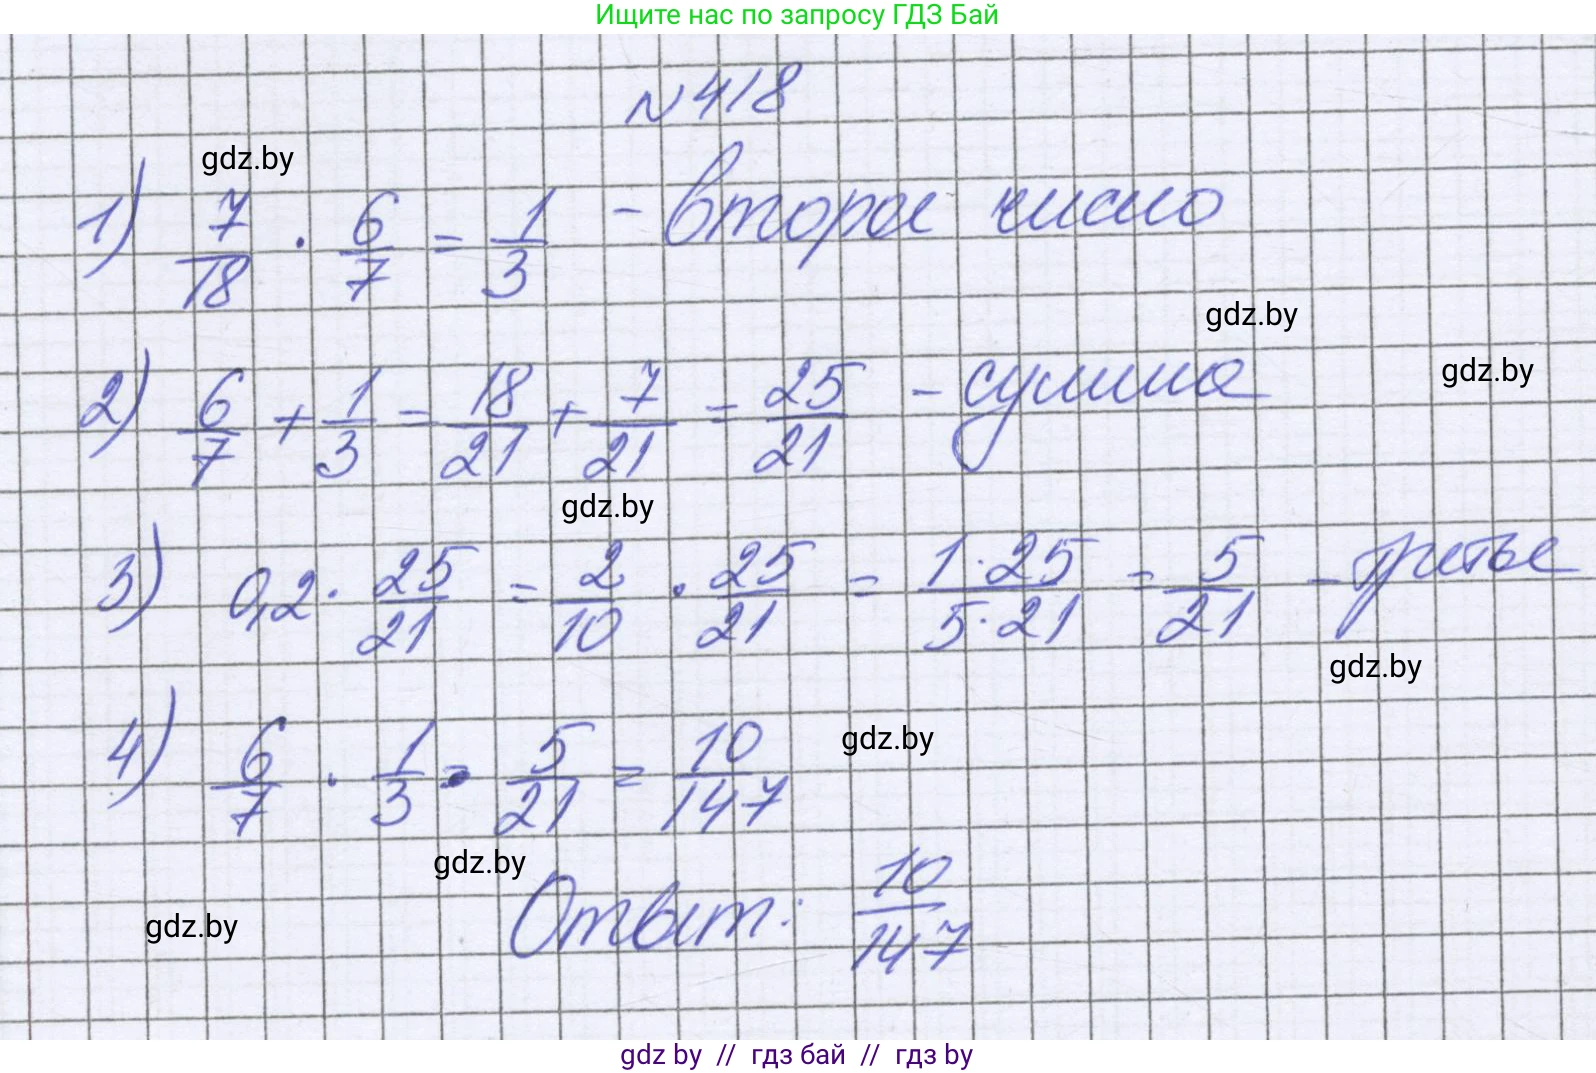 Ищите нас по запросу ГДЗ Бай
№418
gdz.by
1) 7/18 · 6/7 = 1/3 - второе число
gdz.by
2) 6/7 + 1/3 = 18/21 + 7/21 = 25/21 - сумма
gdz.by
gdz.by
3) 0,2 · 25/21 = 2/10 · 25/21 = 1·25/5·21 = 5/21 - третье
gdz.by
4) 6/7 · 1/3 · 5/21 = 10/147
gdz.by
gdz.by
Ответ: 10/147
gdz.by
gdz by // гдз бай // гдз by